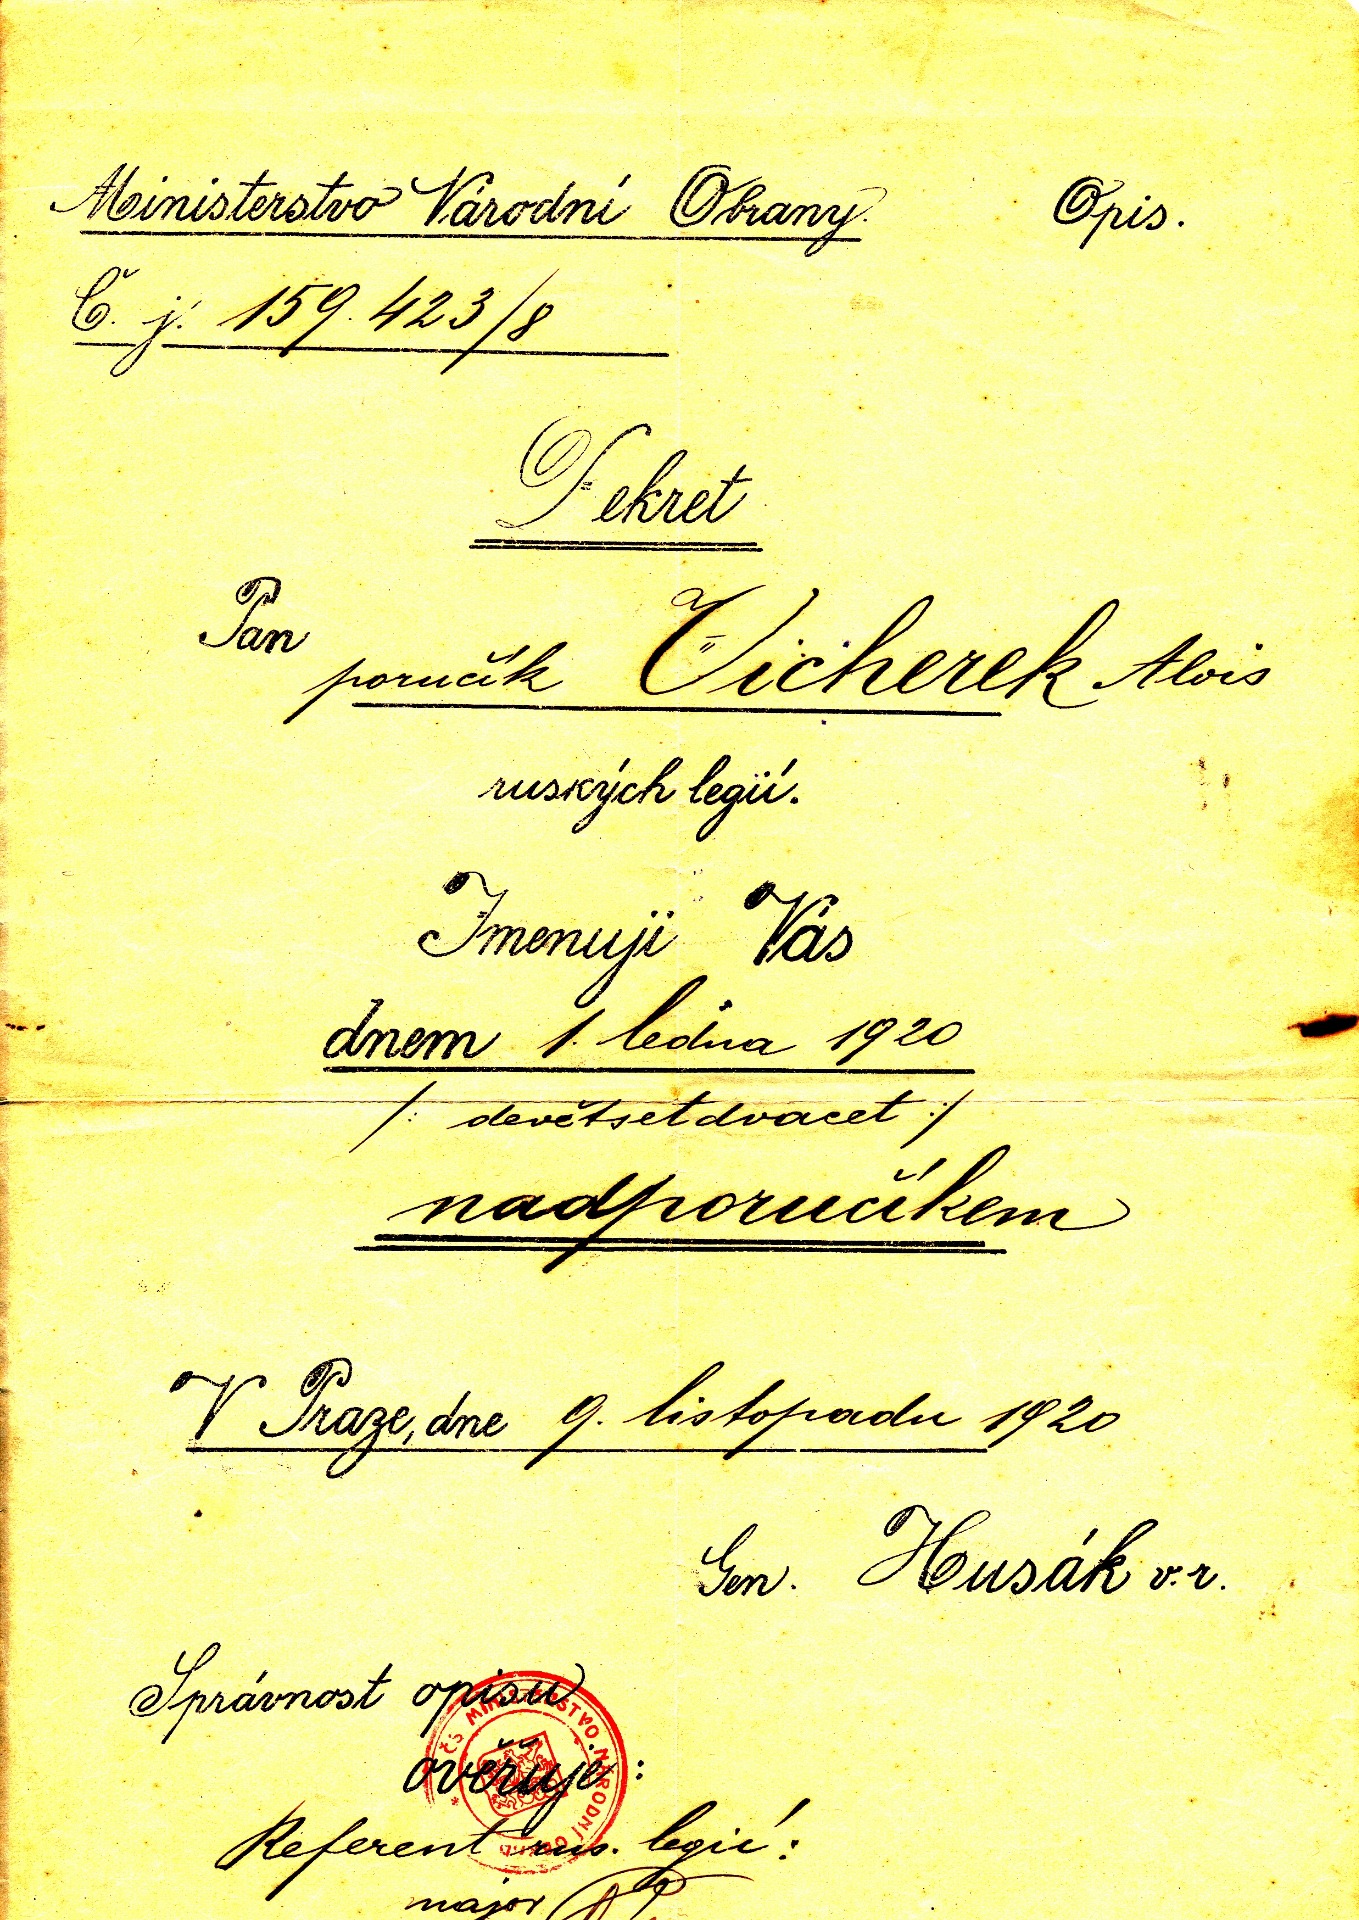 Ministerstvo Národní Obrany. Opis.
Č. j. 159.423/8
Dekret
Pan
poručík Vicherek Alois
ruských legií.
Jmenuji Vás
dnem 1. ledna 1920
/: devětsetdvacet :/
nadporučíkem
V Praze, dne 9. listopadu 1920
Gen. Husák v. r.
Správnost opisu
ověřuje:
ČS MINISTERSTVO NÁRODNÍ
Referent rus. legií:
major